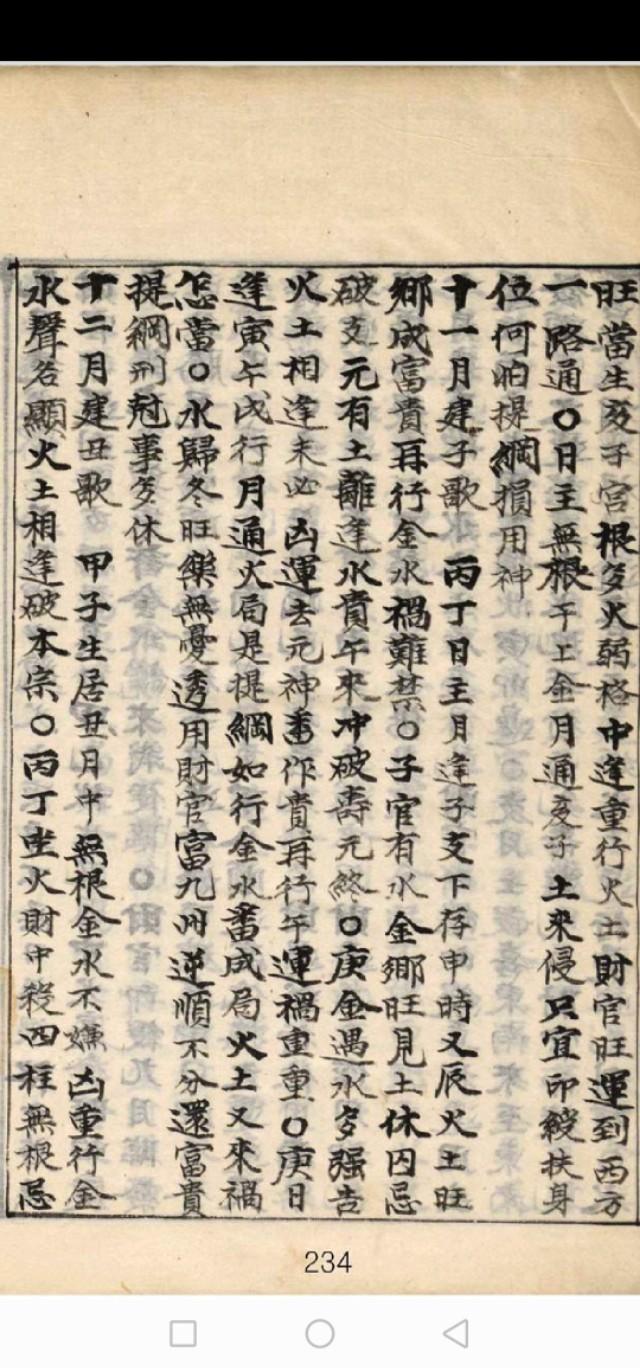 旺當生亥子宮根多火弱格中逢重行火土財官旺運到西方
一路通〇日主無根干上金月通亥子土來侵只宜印綬扶身
位何怕提綱損用神
十一月建子歌　丙丁日主月逢子支下存申時又辰火土旺
鄉成富貴再行金水禍難禁〇子官有水金鄉旺見土休囚忌
破支元有土離逢水貴午來冲破壽元終〇庚金遇水多强吉
火土相逢未必凶運去元神畨作貴再行午運禍重重〇庚日
逢寅午戌行月通火局是提綱如行金水畨成局火土又來禍
怎當〇水歸冬旺樂無憂透用財官富九州逆順不分還富貴
提綱刑尅事多休
十二月建丑歌　甲子生居丑月中無根金水不嫌凶重行金
水聲名顯火土相逢破本宗〇丙丁坐火財中殺四柱無根忌
234